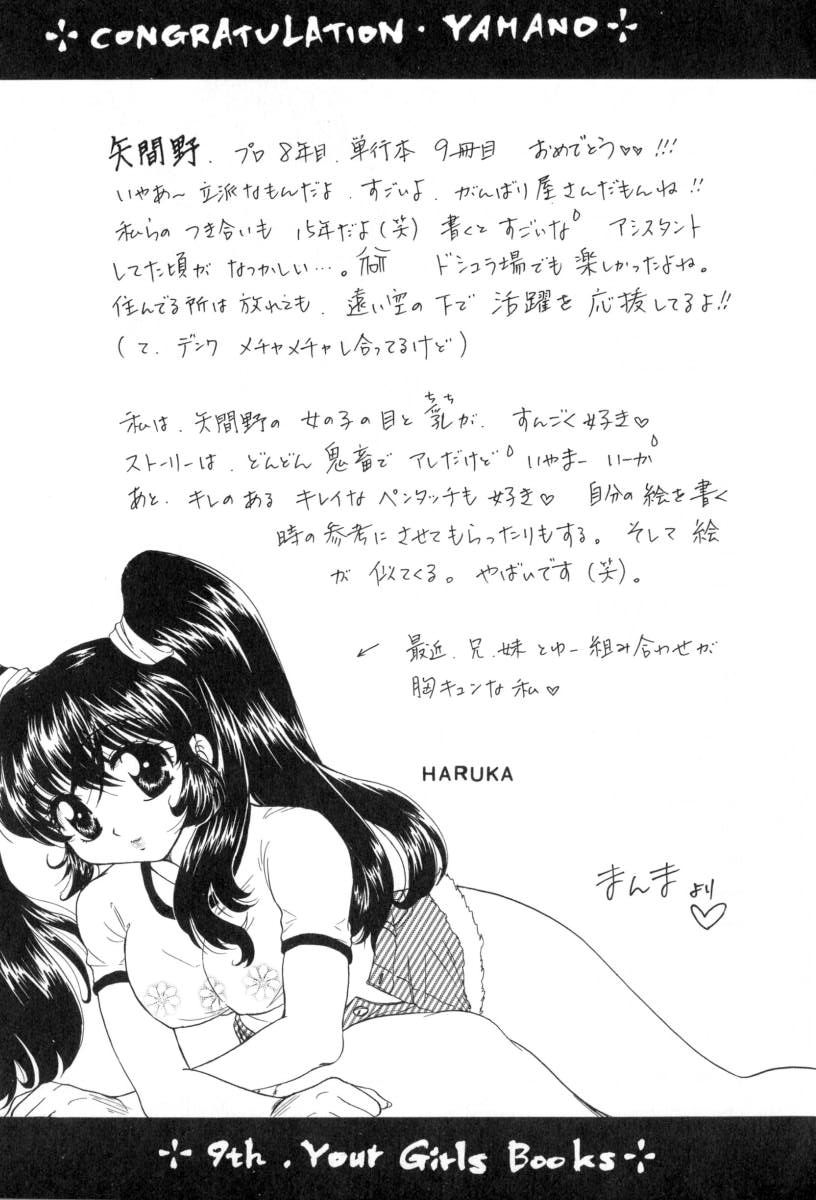 CONGRATULATION・YAMANO
矢間野、プロ8年目、単行本 9冊目 おめでとう♡♡!!!
いやあ〜立派なもんだよ、すごいよ、がんばり屋さんだもんね!!
私らのつき合いも 15年だよ(笑) 書くとすごいな。 アシスタント
してた頃が なつかしい…。 ドシュラ場でも 楽しかったよね。
住んでる所は 放れても、遠い空の下で 活躍を 応援してるよ!!
(て、デンワ メチャメチャし合ってるけど)
私は、矢間野の 女の子の目と 乳(ちち)が、すんごく好き♡
ストーリーは、どんどん鬼畜で アレだけど いやまー いーか
あと、キレのある キレイな ペンタッチも 好き♡ 自分の絵を書く
時の参考に させてもらったりもする。そして 絵
が 似てくる。やばいです(笑)。
← 最近、兄、妹とゆー組み合わせが
胸キュンな 私♡
HARUKA
まんまより♡
9th . Your Girls Books